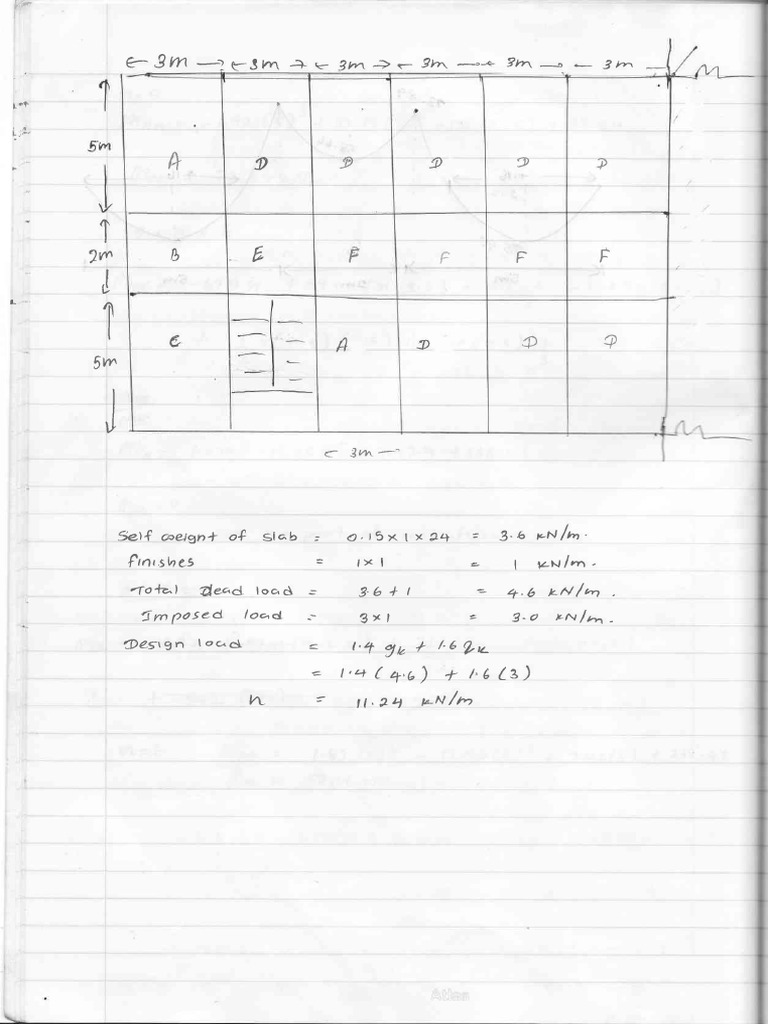 ← 3m → ← 3m → ← 3m → ← 3m → ← 3m → ← 3m →
5m
A D B D D D
2m
B E F F F F
5m
C A D D D
← 3m —
Self weignt of slab = 0.15 x 1 x 24 = 3.6 kN/m.
finishes = 1 x 1 = 1 kN/m.
Total Dead load = 3.6 + 1 = 4.6 kN/m.
Imposed load = 3 x 1 = 3.0 kN/m.
Design load = 1.4 gk + 1.6 qk
= 1.4 ( 4.6 ) + 1.6 ( 3 )
n = 11.24 kN/m
Atlas